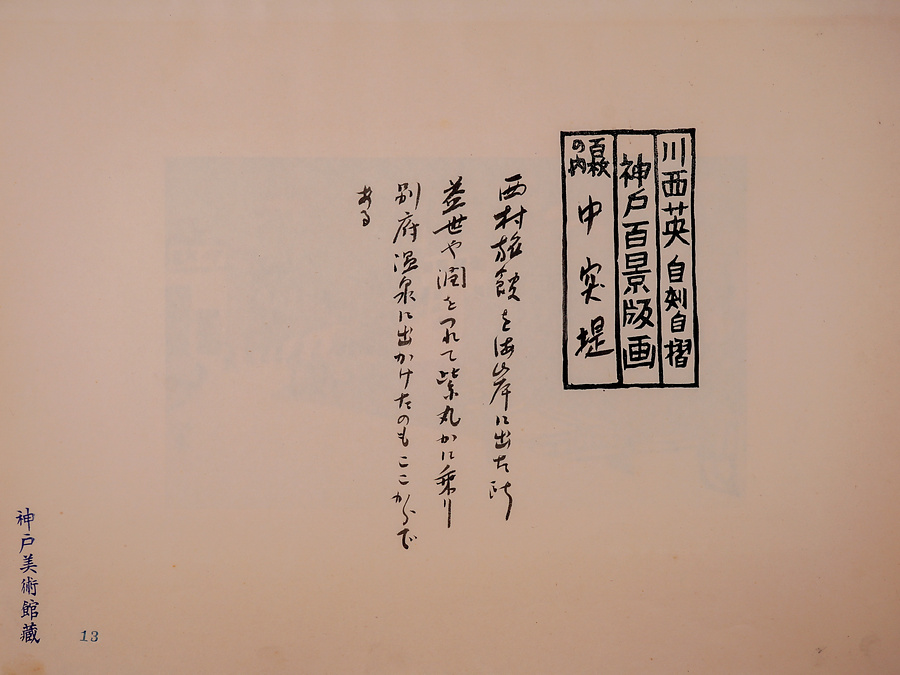 川西英 自刻自摺
神戸百景版画
百枚の内 中突堤
西村旅館を海岸に出た所
益世や潤をつれて紫丸かに乗り
別府温泉に出かけたのもここからで
ある
神戸美術館蔵
13